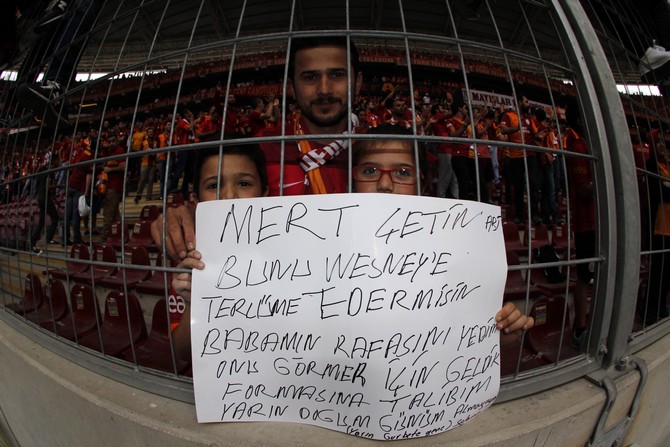 MERT ÇETİN ABİ
BUNU WESNEY'E
TERLÜME EDERMİSİN
BABAMIN KAFASINI YEDİM
ONU GÖRMEK İÇİN GELDİK
FORMASINA TALİBİM
YARIN DOĞUM GÜNÜM